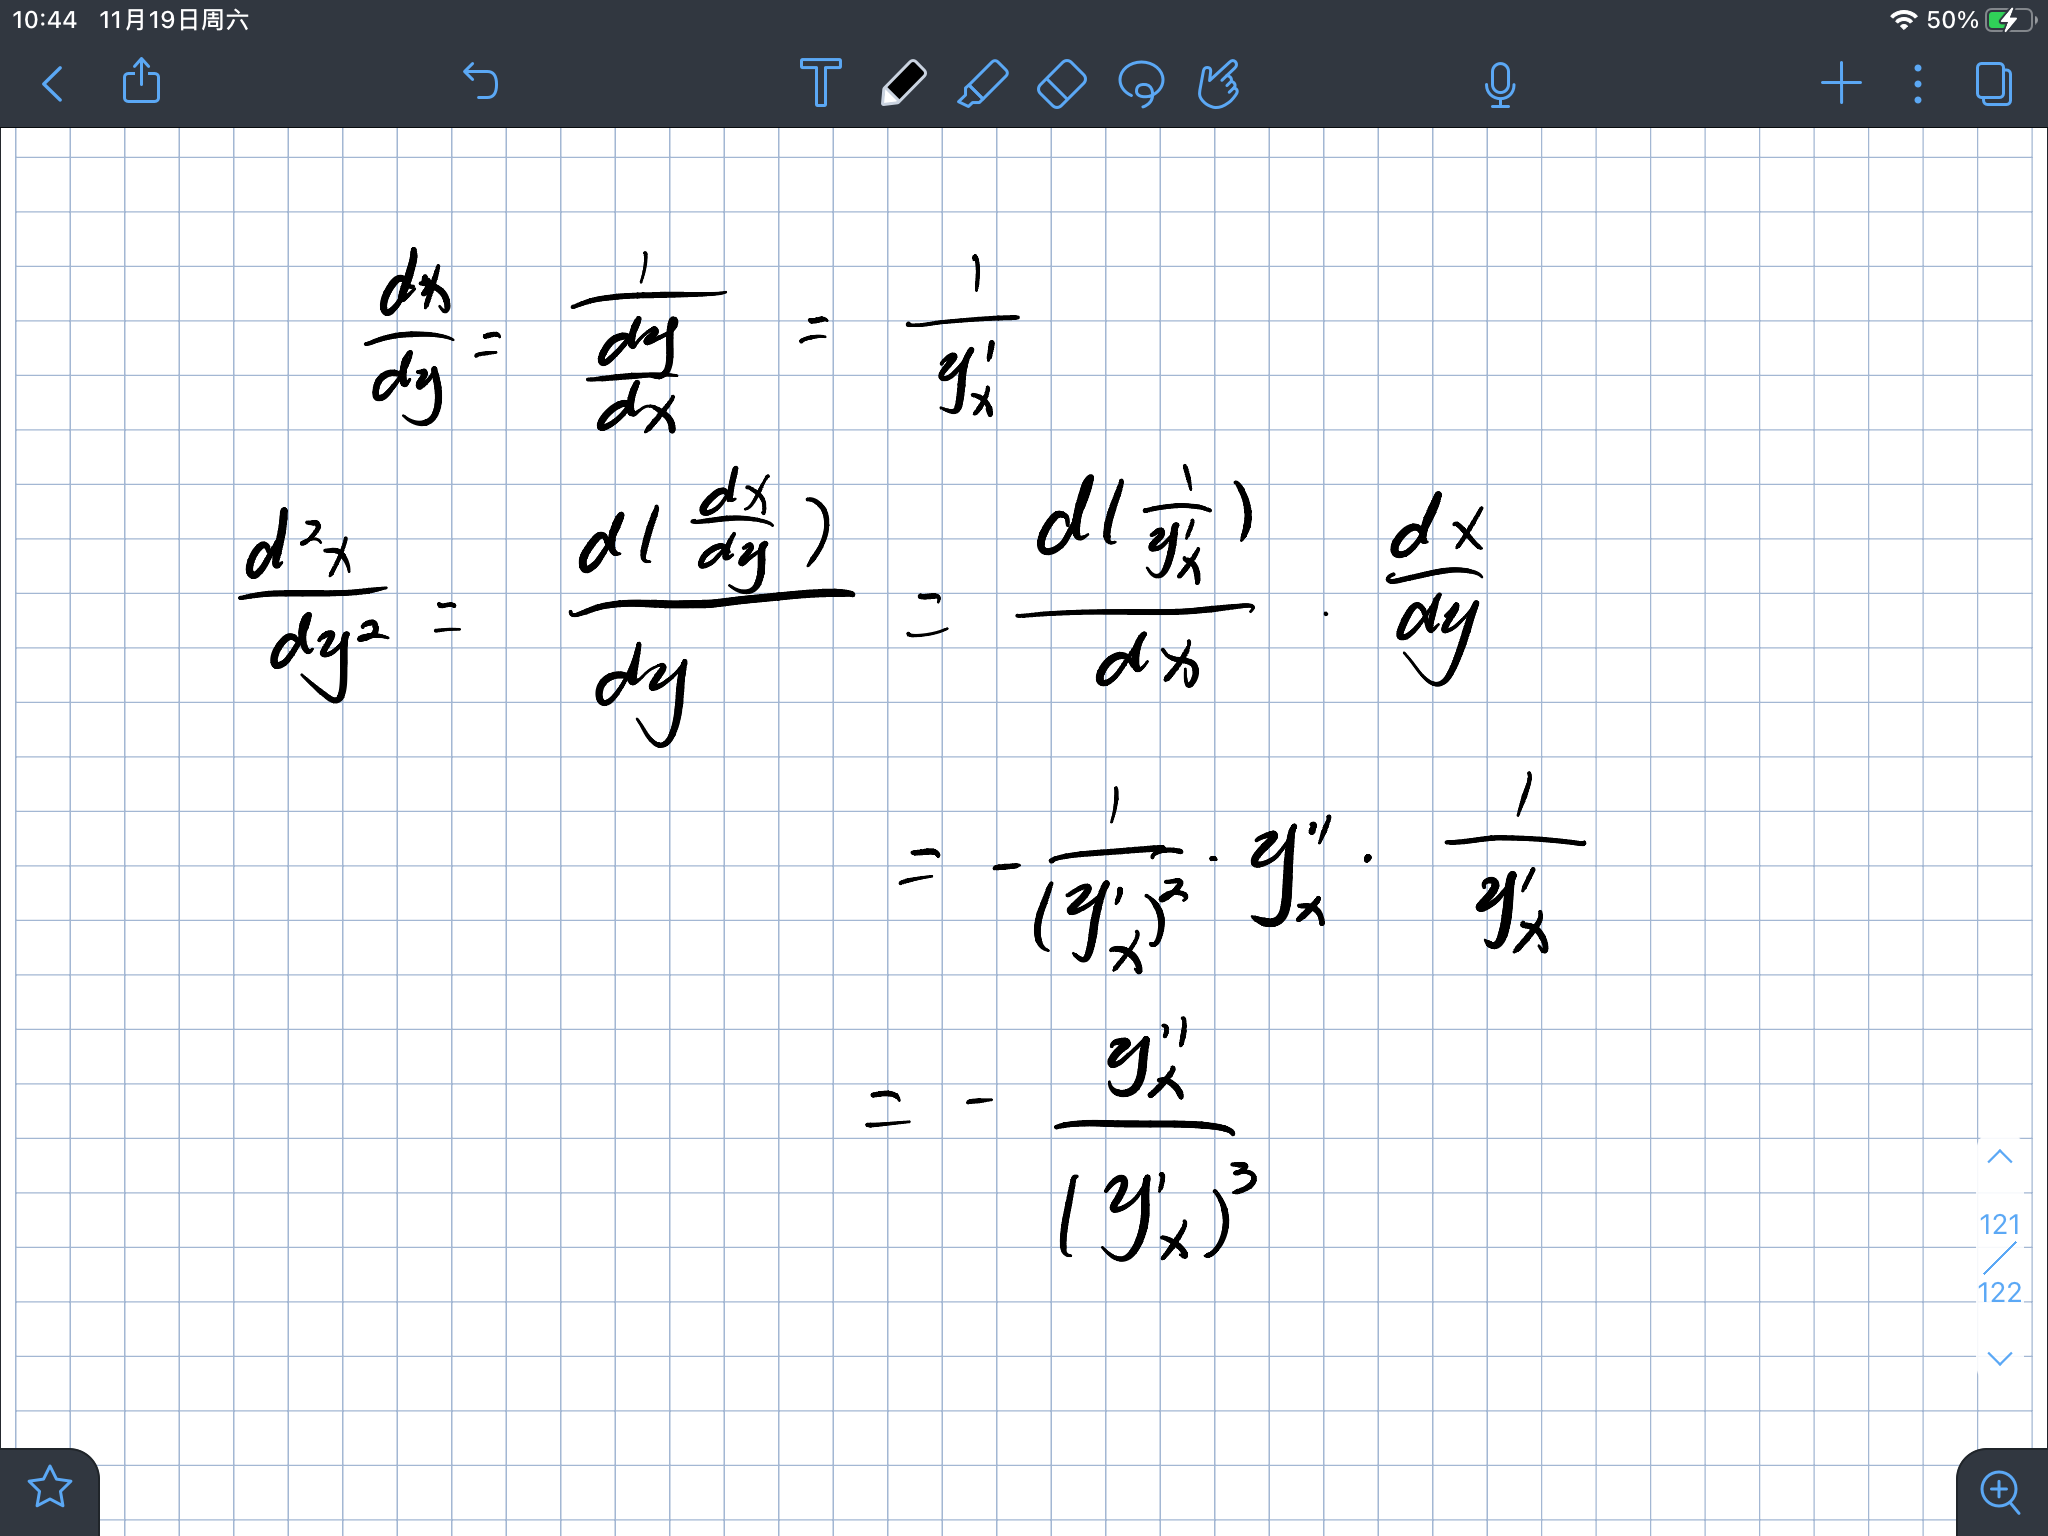 10:44 11月19日周六 50%
dx/dy = 1/(dy/dx) = 1/y'ₓ
d²x/dy² = d(dx/dy)/dy = d(1/y'ₓ)/dx · dx/dy
= - 1/(y'ₓ)² · y''ₓ · 1/y'ₓ
= - y''ₓ/(y'ₓ)³
121
/
122